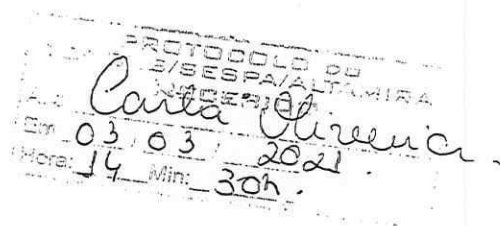 PROTOCOLO DO
S/SESPA/ALTAMIRA
Carla Oliveira
Em 03 / 03 / 2021
Hora: 14 Min: 30h.